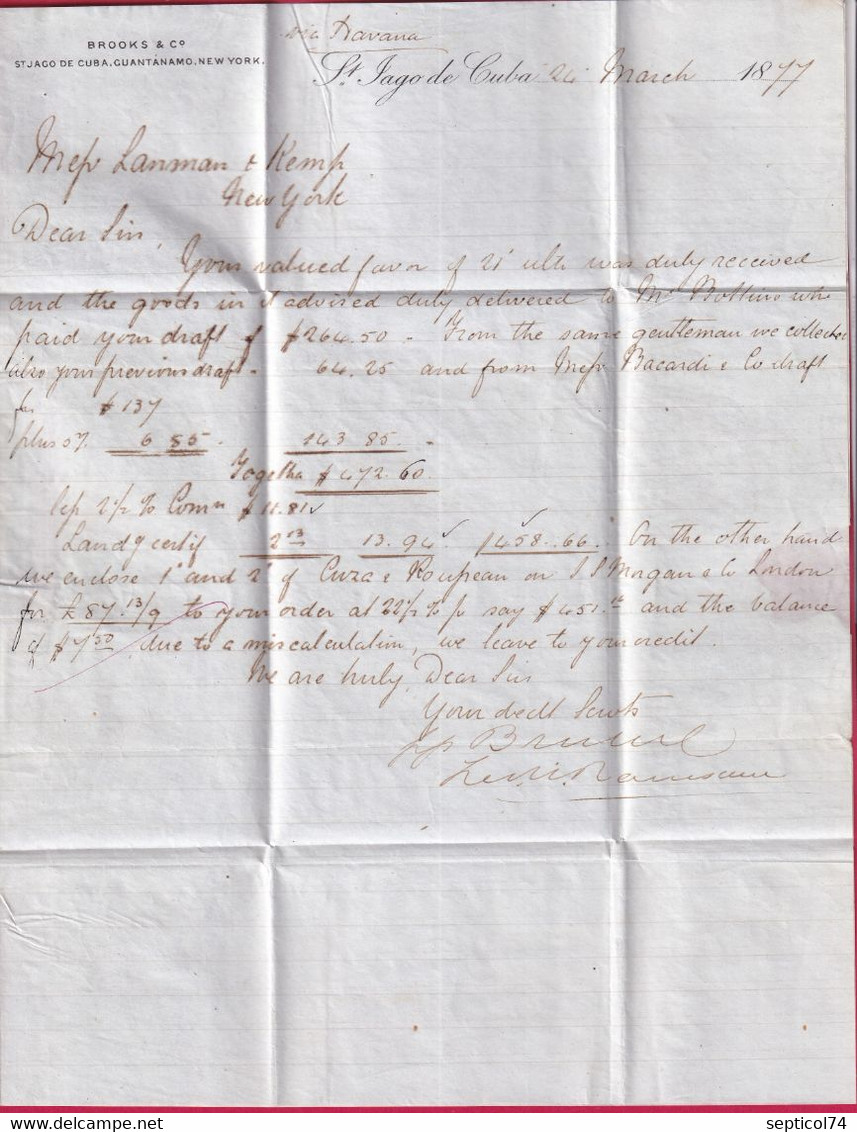 via Havana
BROOKS & Co
ST JAGO DE CUBA, GUANTÁNAMO, NEW YORK.
St. Jago de Cuba 24 March 1877
Messrs Lanman & Kemp
New York
Dear Sirs,
Your valued favor of 21 ulto was duly received
and the goods in it advised duly delivered to Mr Bottino who
paid your draft of $264.50 - From the same gentleman we collected
also your previous draft - 64.25 and from Messrs Bacardi & Co draft
for $137
plus 5% 6 85 . 143 85. -
Together $472.60
less 2½ % Comn $11.81
Landg certif 2 13 13.94 $458.66. On the other hand
we enclose 1 and 2 of & on J S Morgan & Co London
for £87.13/9 to your order at 22½ % p say $451. and the balance
of $7 50 due to a miscalculation, we leave to your credit.
We are truly, Dear Sirs
Your obedt Servts
pp Brooks & Co